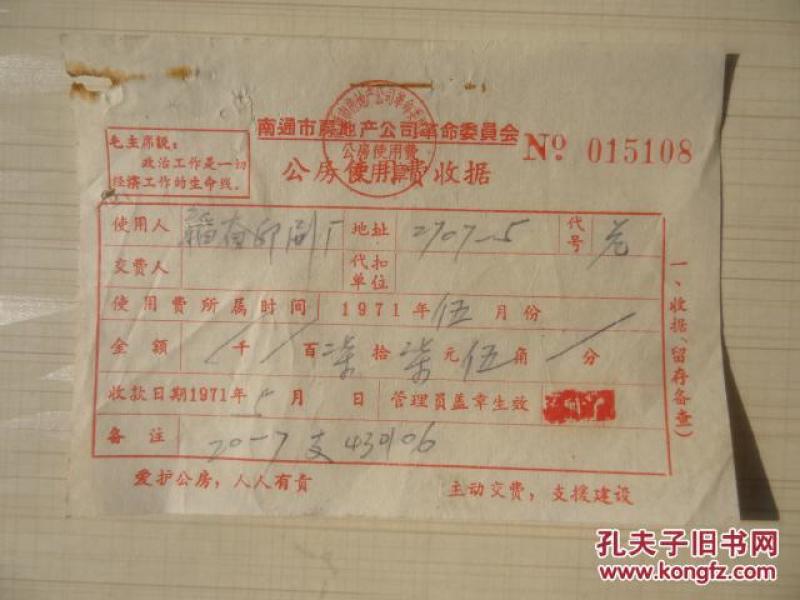 南通市房地产公司革命委員会
公房使用費收据
№ 015108
毛主席説：
政治工作是一切
经济工作的生命线。
公房使用費
使用人 印刷厂 地址 2707-5 代号
交费人 代扣单位
使用费所属时间 1971年伍月份
金额 千 百柒拾柒元伍角 分
收款日期1971年 5月 日 管理員盖章生效
备注 20-7 支 430106
爱护公房，人人有责 主动交费，支援建設
一、收据（留存备查）
孔夫子旧书网
www.kongfz.com